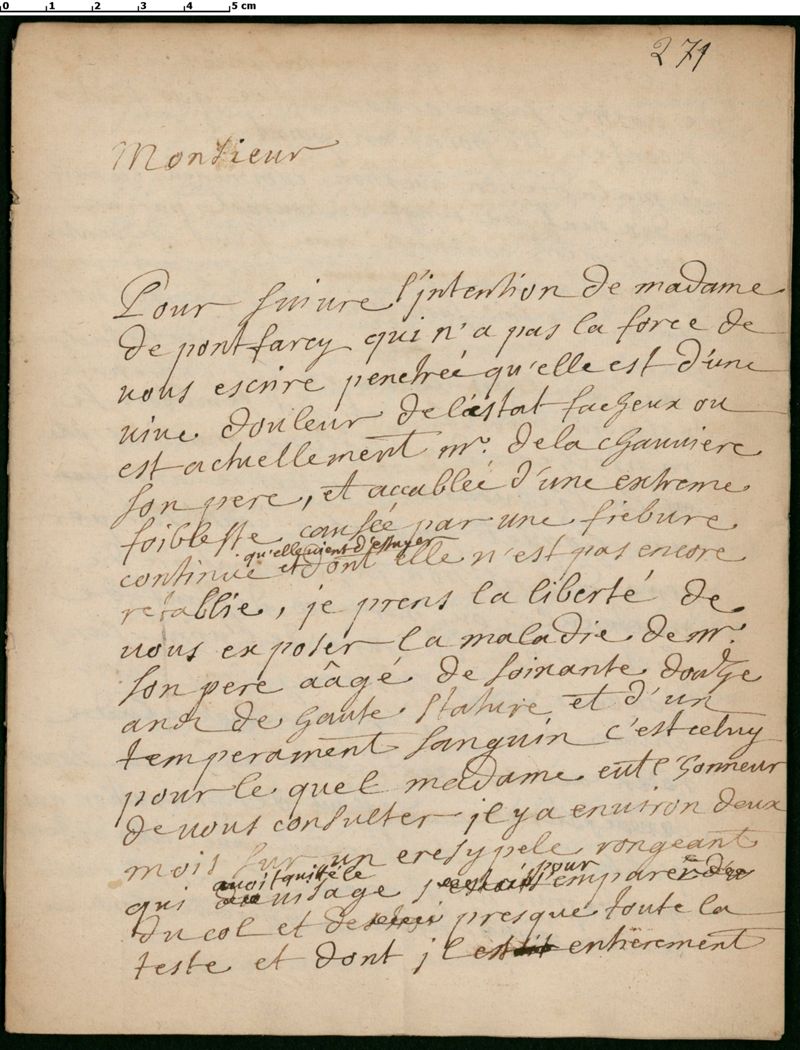 0 1 2 3 4 5 cm
271
Monsieur
Pour suivre l'jntention de madame
de pontfarcy qui n'a pas la force de
vous escrire penetrée qu'elle est d'une
vive douleur de l'estat facheux ou
est actuellement mr. de la chauviere
son pere, et accablée d'une extreme
foiblesse causée par une fiebvre
qu'elle vient d'essuyer
continue et dont elle n'est pas encore
retablie, je prens la liberté de
vous exposer la maladie de mr.
son pere aâgé de soixante douze
ans de haute stature et d'un
temperament sanguin c'est celuy
pour le quel madame eut l'honneur
de vous consulter jl y a environ deux
mois sur un eresypele rongeant
avoit quitté le pour
qui visage s'emparer
du col et de presque toute la
teste et dont jl est entierement